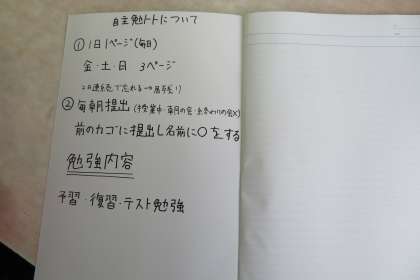 自主勉ノートについて
① 1日1ページ(毎日)
金・土・日 3ページ
2日連続で忘れる→居残り
② 毎朝提出(授業中・朝の会・終わりの会×)
前のカゴに提出し名前に○をする
勉強内容
予習・復習・テスト勉強